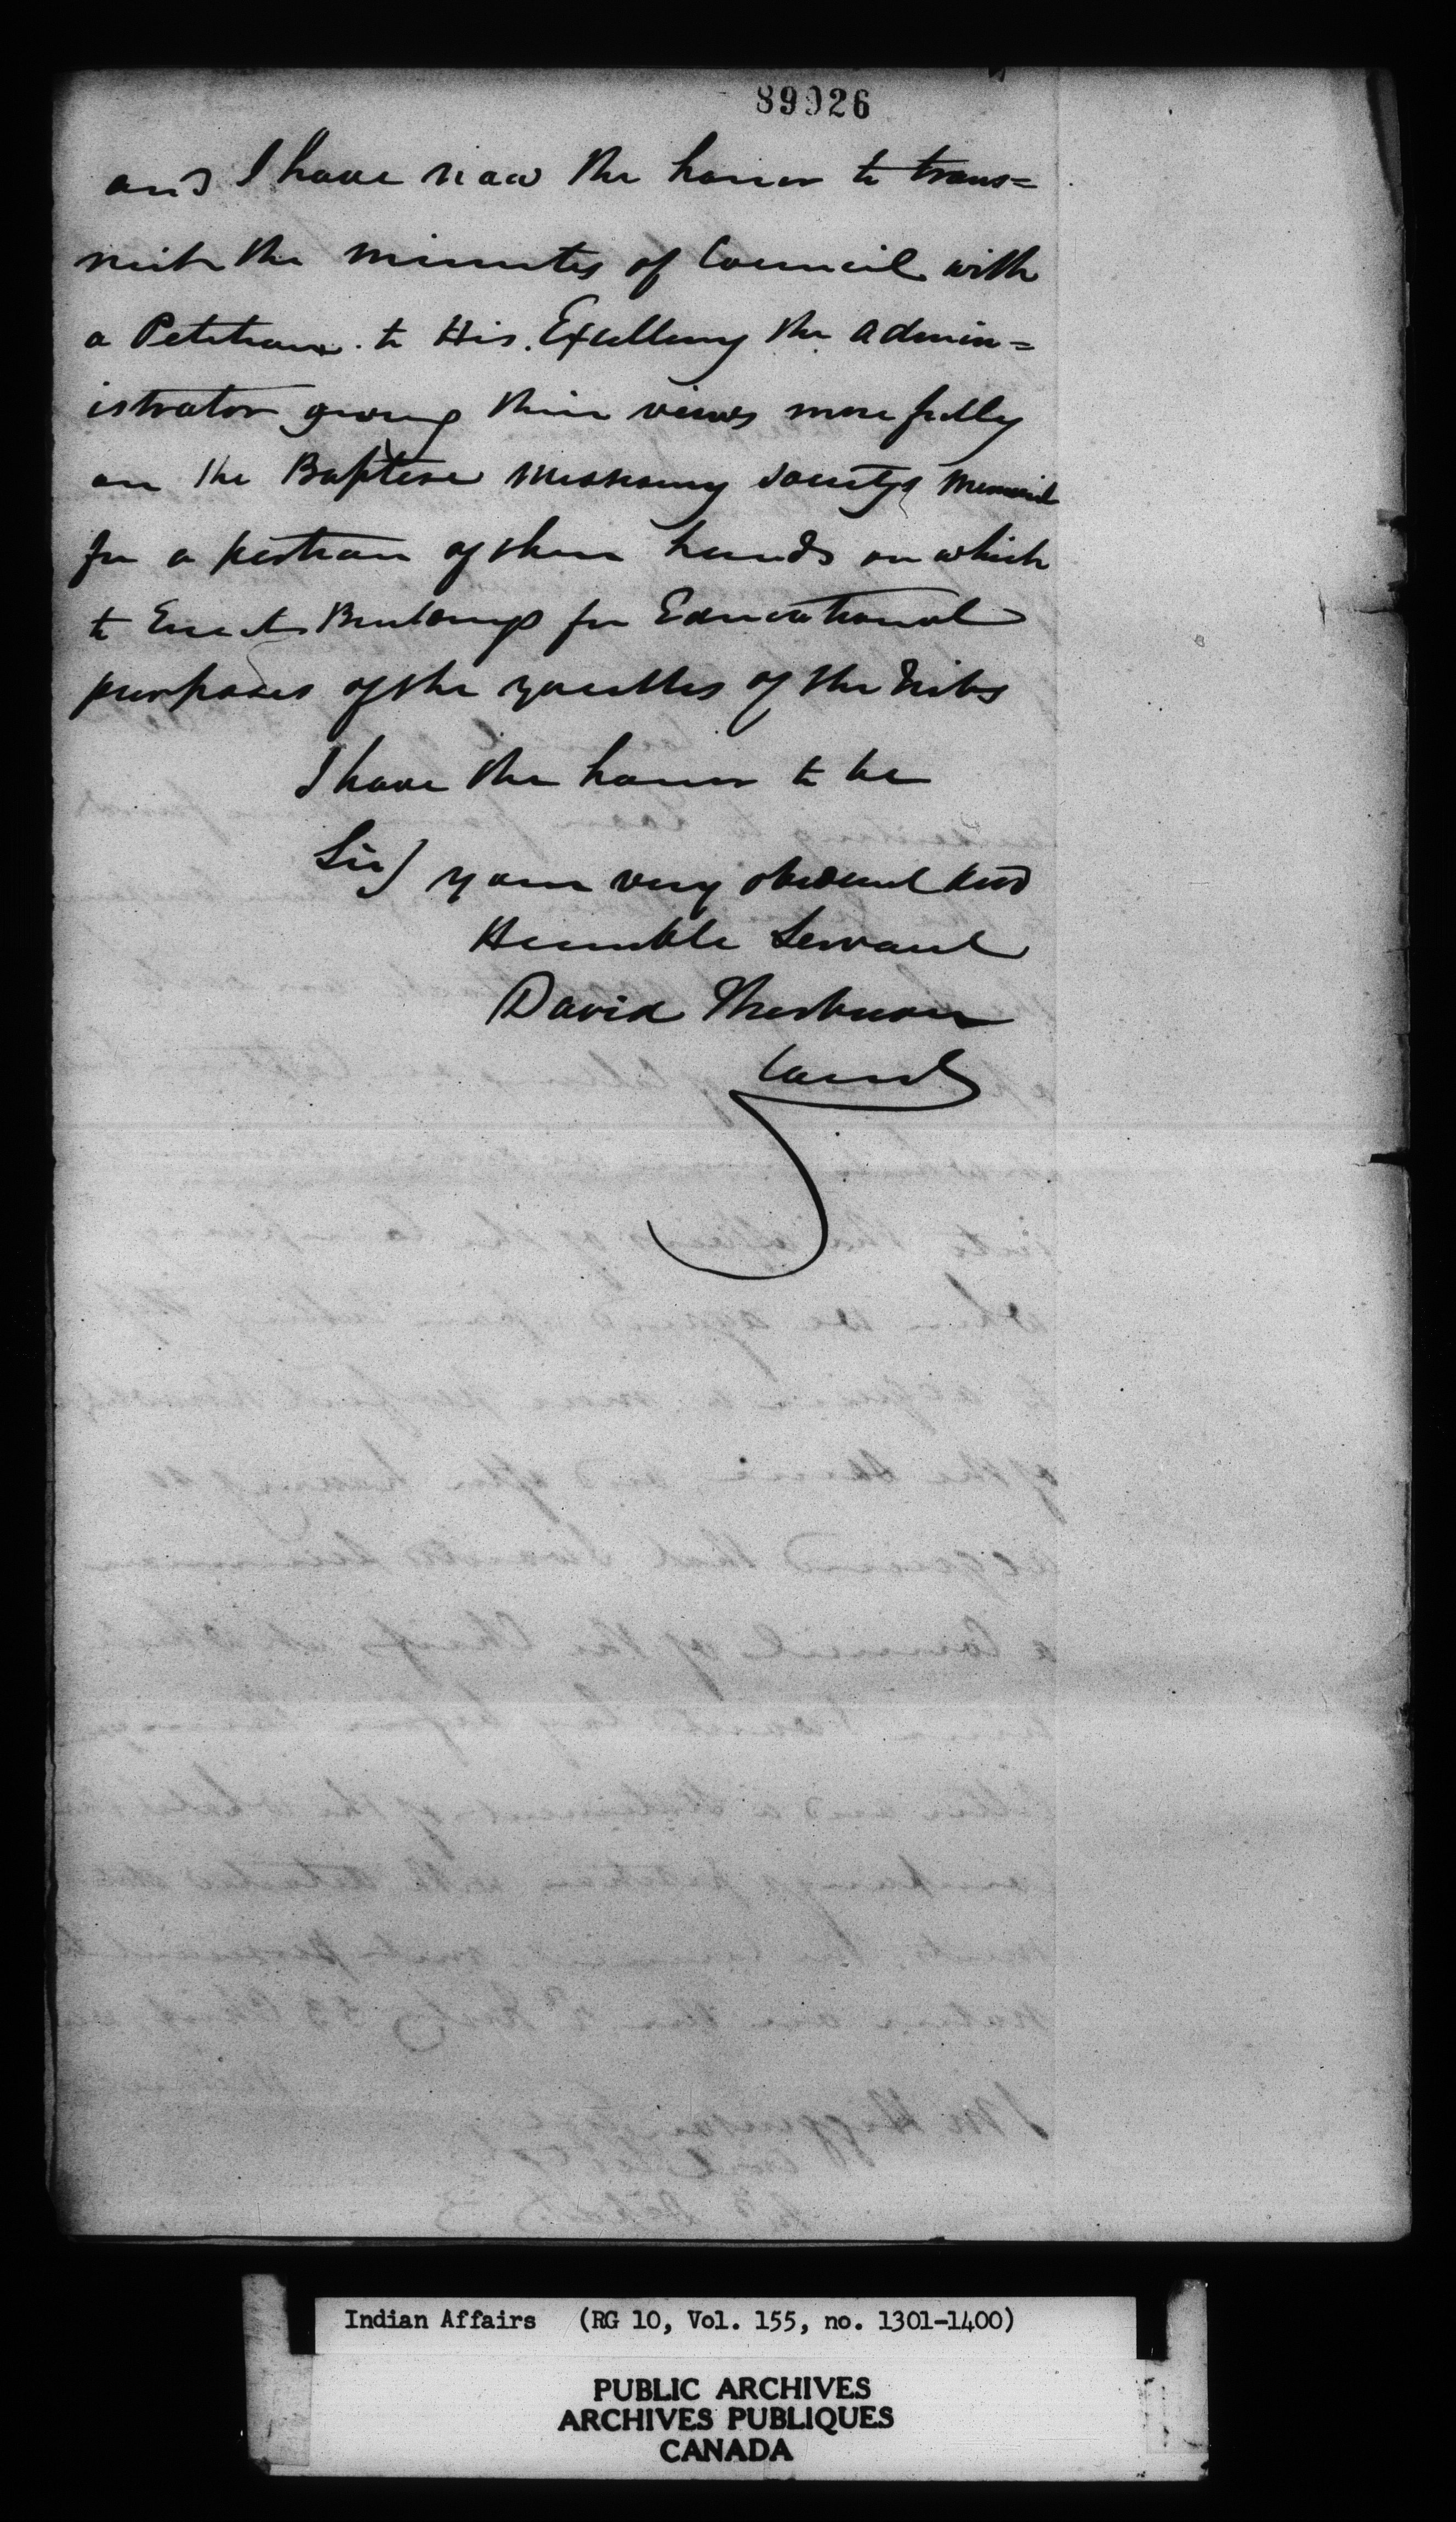 89026
and I have now the honor to trans=
mit the minutes of Council with
a Petition to His Excellency the Admin=
istrator giving their views more fully
on the Baptist Missionary Society's Memorial
for a portion of their lands on which
to Erect Buildings for Educational
purposes of the youths of the Tribes
I have the honor to be
Sir
your very obedient and
Humble Servant
David Thorburn
Comr
Indian Affairs (RG 10, Vol. 155, no. 1301-1400)
PUBLIC ARCHIVES
ARCHIVES PUBLIQUES
CANADA